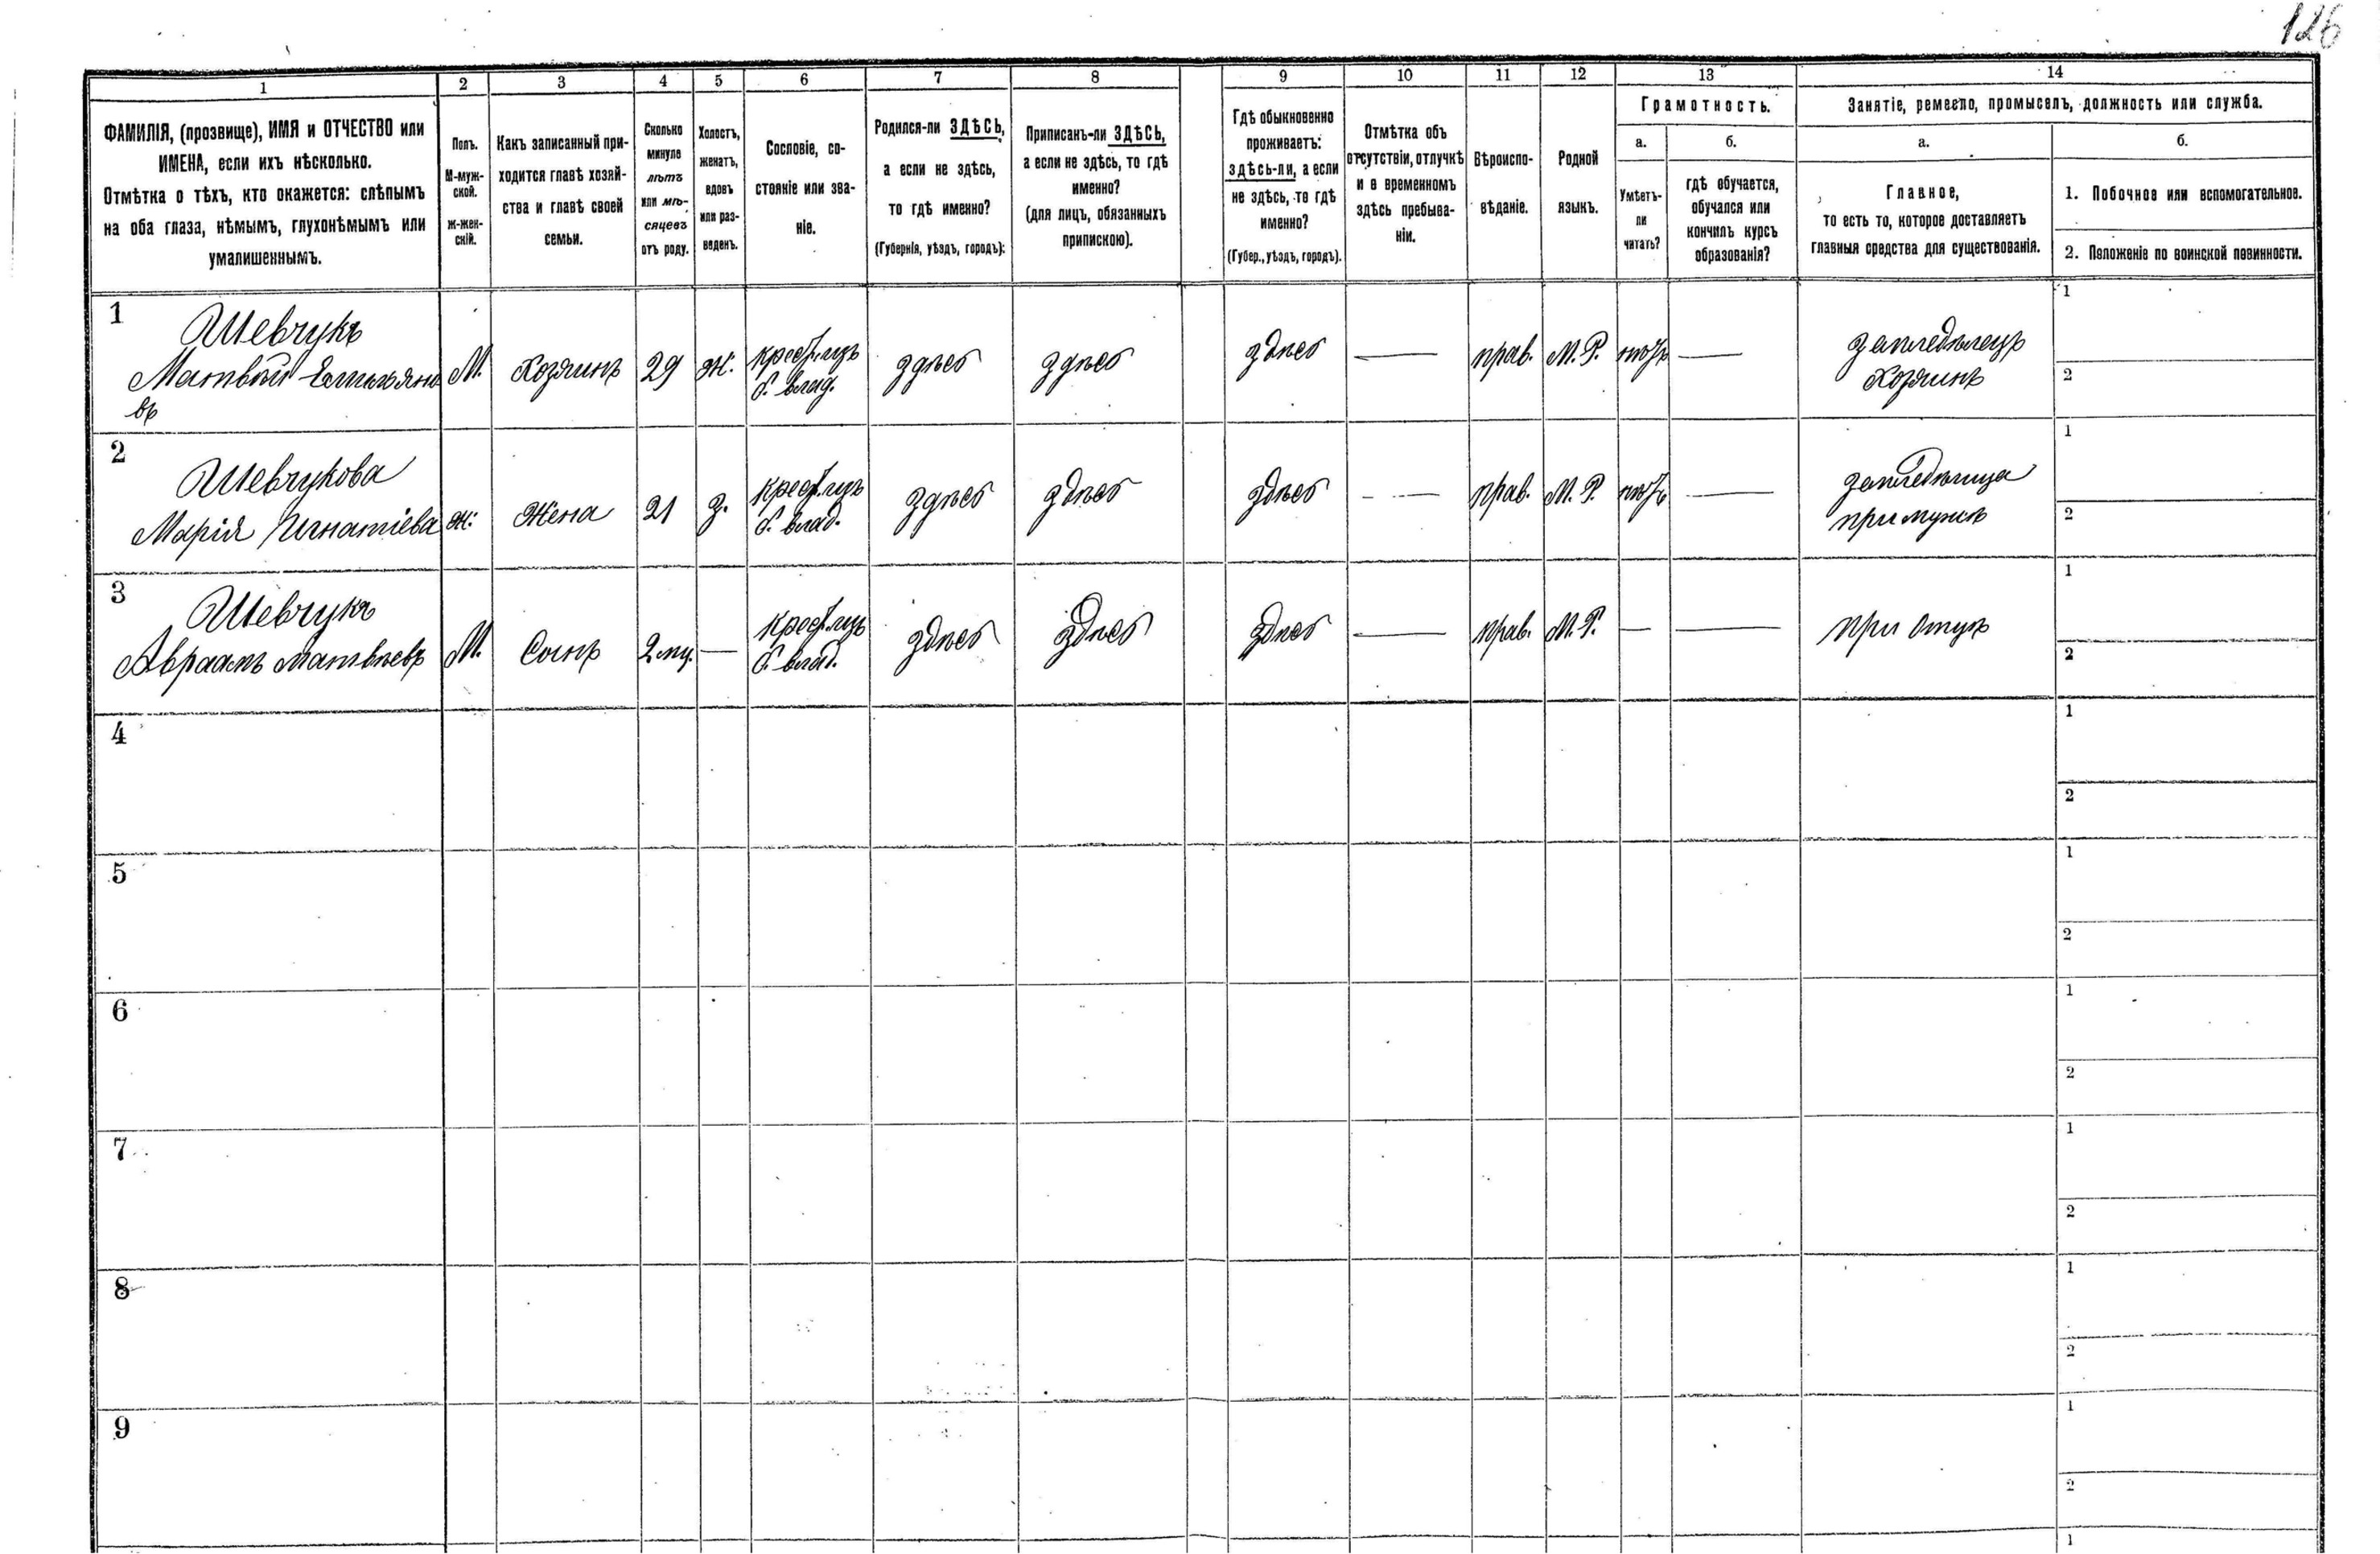 126
1 2 3 4 5 6 7 8 9 10 11 12 13 14
ФАМИЛІЯ, (прозвище), ИМЯ и ОТЧЕСТВО или
ИМЕНА, если ихъ нѣсколько.
Отмѣтка о тѣхъ, кто окажется: слѣпымъ
на оба глаза, нѣмымъ, глухонѣмымъ или
умалишеннымъ.
Полъ.
М-муж-
ской.
Ж-жен-
скій.
Какъ записанный при-
ходится главѣ хозяй-
ства и главѣ своей
семьи.
Сколько
минуло
лѣтъ
или мѣ-
сяцевъ
отъ роду.
Холостъ,
женатъ,
вдовъ
или раз-
веденъ.
Сословіе, со-
стояніе или зва-
ніе.
Родился-ли ЗДѢСЬ,
а если не здѣсь,
то гдѣ именно?
(Губернія, уѣздъ, городъ).
Приписанъ-ли ЗДѢСЬ,
а если не здѣсь, то гдѣ
именно?
(для лицъ, обязанныхъ
припискою).
Гдѣ обыкновенно
проживаетъ:
здѣсь-ли, а если
не здѣсь, то гдѣ
именно?
(Губер., уѣздъ, городъ).
Отмѣтка объ
отсутствіи, отлучкѣ
и о временномъ
здѣсь пребыва-
ніи.
Вѣроиспо-
вѣданіе.
Родной
языкъ.
Грамотность.
а.
Умѣетъ-
ли
читать?
б.
гдѣ обучается,
обучался или
кончилъ курсъ
образованія?
Занятіе, ремесло, промыселъ, должность или служба.
а.
Главное,
то есть то, которое доставляетъ
главныя средства для существованія.
б.
1. Побочное или вспомогательное.
2. Положеніе по воинской повинности.
1
Шевчукъ
Матвѣй Емильяно
въ
М.
Хозяинъ
29
Ж.
б. влад.
здѣсь
здѣсь
здѣсь
прав.
М. Р.
нѣтъ
Хозяинъ
1
2
2
Шевчукова
Марія Игнатіева
Ж.
Жена
21
З.
б. влад.
здѣсь
здѣсь
здѣсь
прав.
М. Р.
нѣтъ
при мужѣ
1
2
3
Шевчукъ
Авраамъ Матвѣевъ
М.
Сынъ
—
б. влад.
здѣсь
здѣсь
здѣсь
прав.
М. Р.
—
при отцѣ
1
2
4
1
2
5
1
2
6
1
2
7
1
2
8
1
2
9
1
2
1